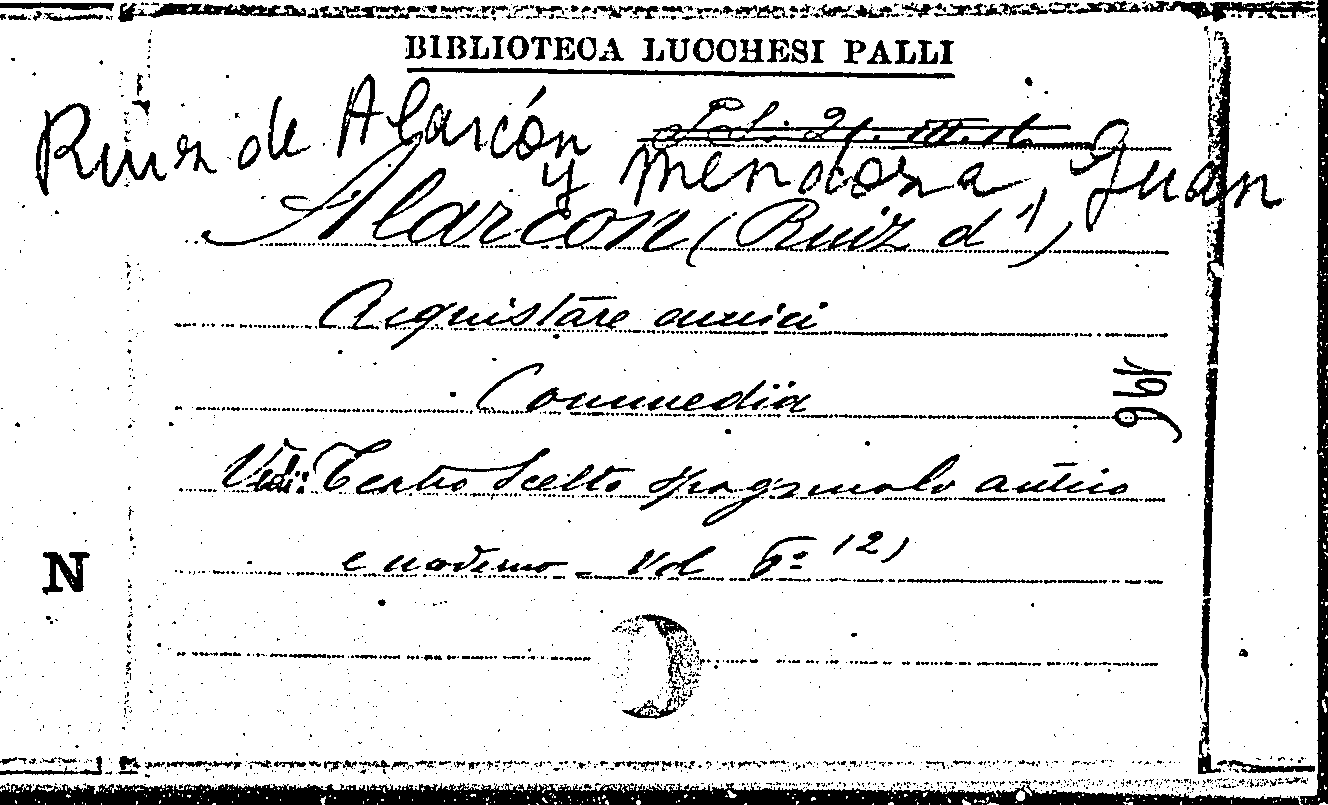 BIBLIOTECA LUCCHESI PALLI
Ruiz de Alarcón
y Mendoza, Juan
Alarcon (Ruiz d')
Acquistare amici
Commedia
Vedi: Teatro Scelto spagnuolo antico
e moderno - Vol 6º (2)
N